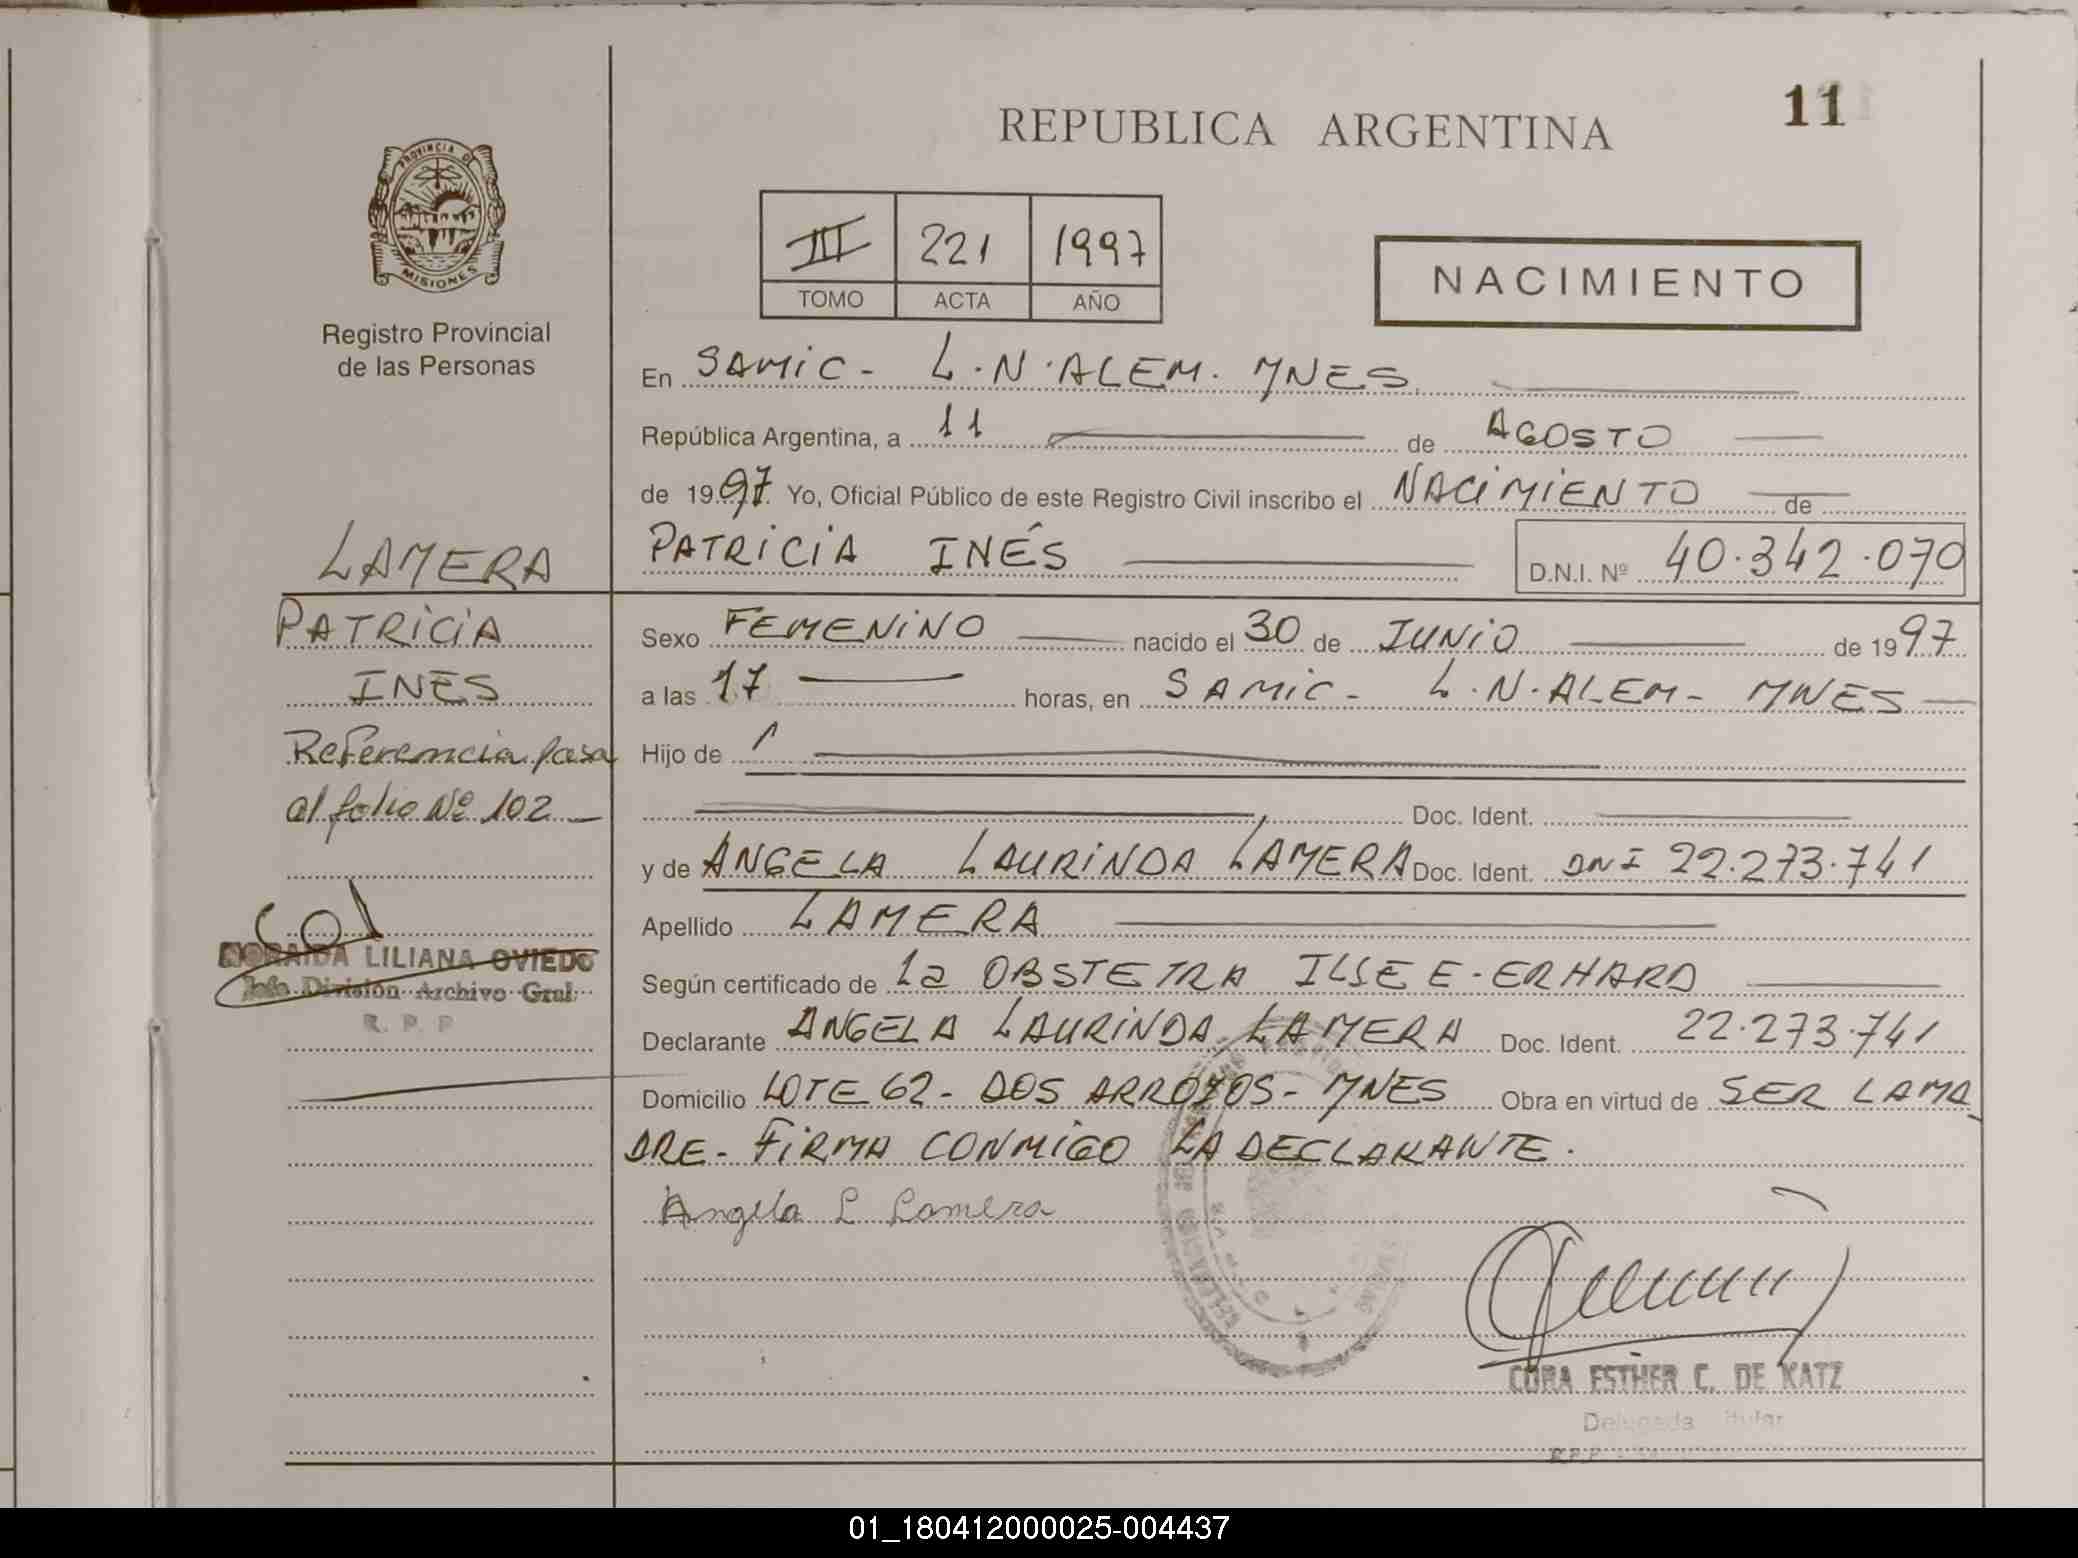 REPUBLICA ARGENTINA
11
PROVINCIA DE
MISIONES
Registro Provincial
de las Personas
III 221 1997
TOMO ACTA AÑO
NACIMIENTO
En SAMIC - L.N.ALEM. MNES.
República Argentina, a 11 de AGOSTO
de 1997 Yo, Oficial Público de este Registro Civil inscribo el NACIMIENTO de
PATRICIA INÉS D.N.I. Nº 40.342.070
LAMERA
PATRICIA
INES
Referencia pasa
al folio Nº 102
NORAIDA LILIANA OVIEDO
Jefe División Archivo Gral
R. P. P
Sexo FEMENINO nacido el 30 de JUNIO de 1997
a las 17 horas, en SAMIC - L.N.ALEM - MNES
Hijo de
Doc. Ident.
y de ANGELA LAURINDA LAMERA Doc. Ident. DNI 22.273.741
Apellido LAMERA
Según certificado de La OBSTETRA ILSE E. ERHARD
Declarante ANGELA LAURINDA LAMERA Doc. Ident. 22.273.741
Domicilio LOTE 62 - DOS ARROYOS - MNES Obra en virtud de SER LA MA
DRE - FIRMA CONMIGO LA DECLARANTE.
Angela L Lamera
CORA ESTHER C. DE KATZ
Delegada Titular
R.P.P
01_180412000025-004437